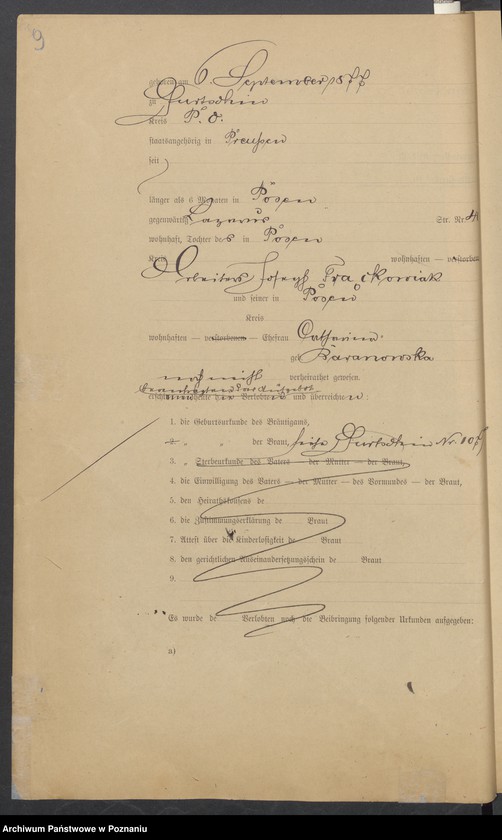 9
geboren am 6. September 1877
zu
Kreis P. O.
staatsangehörig in Preußen
seit
länger als 6 Monaten in Posen
gegenwärtig Lazarus Str. Nr. 4
wohnhaft, Tochter des in Posen
Kreis wohnhaften — verstorbenen
Arbeiters Joseph Frąckowiak
und seiner in Posen
Kreis
wohnhaften — verstorbenen — Ehefrau Catharina
geb Baranowska
noch nicht verheirathet gewesen.
beantragten das Aufgebot
der Verlobten und überreichen:
1. die Geburtsurkunde des Bräutigams,
2. „ „ der Braut, Nr. 107
3. „ Sterbeurkunde des Vaters — der Mutter — der Braut,
4. die Einwilligung des Vaters — der Mutter — des Vormundes — der Braut,
5. den Heirathskonsens de
6. die Zustimmungserklärung de Braut
7. Attest über die Kinderlosigkeit de Braut
8. den gerichtlichen Auseinandersetzungsschein de Braut
9.
Es wurde de Verlobten noch die Beibringung folgender Urkunden aufgegeben:
a)
Archiwum Państwowe w Poznaniu